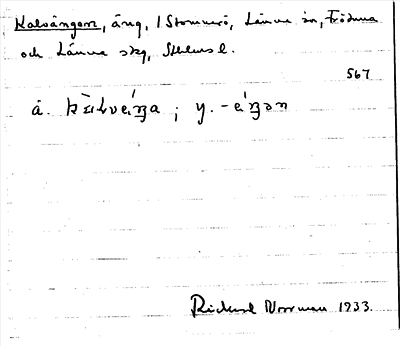 Kalvängen, äng, 1 Stommerö, Länna sn, Frötuna
och Länna skg, Sthlms l.
567
å. kàlveŋa ; y. -éŋən
Rickard Norrman 1933.